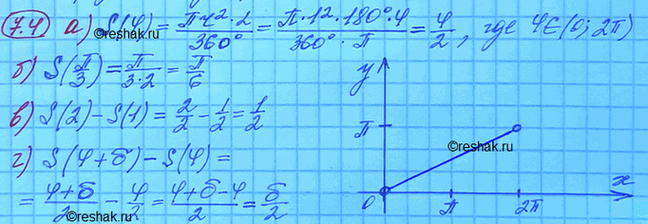 7.4 а) S(φ) = π·r²·2 / 360° = π·1²·180°·φ / 360°·π = φ/2, где φ∈(0; 2π)
б) S(π/3) = π/3·2 = π/6
в) S(2) - S(1) = 2/2 - 1/2 = 1/2
г) S(φ+δ) - S(φ) =
= φ+δ/2 - φ/2 = φ+δ-φ/2 = δ/2
y
π
0 π 2π x
©Reshak.ru
©Reshak.ru